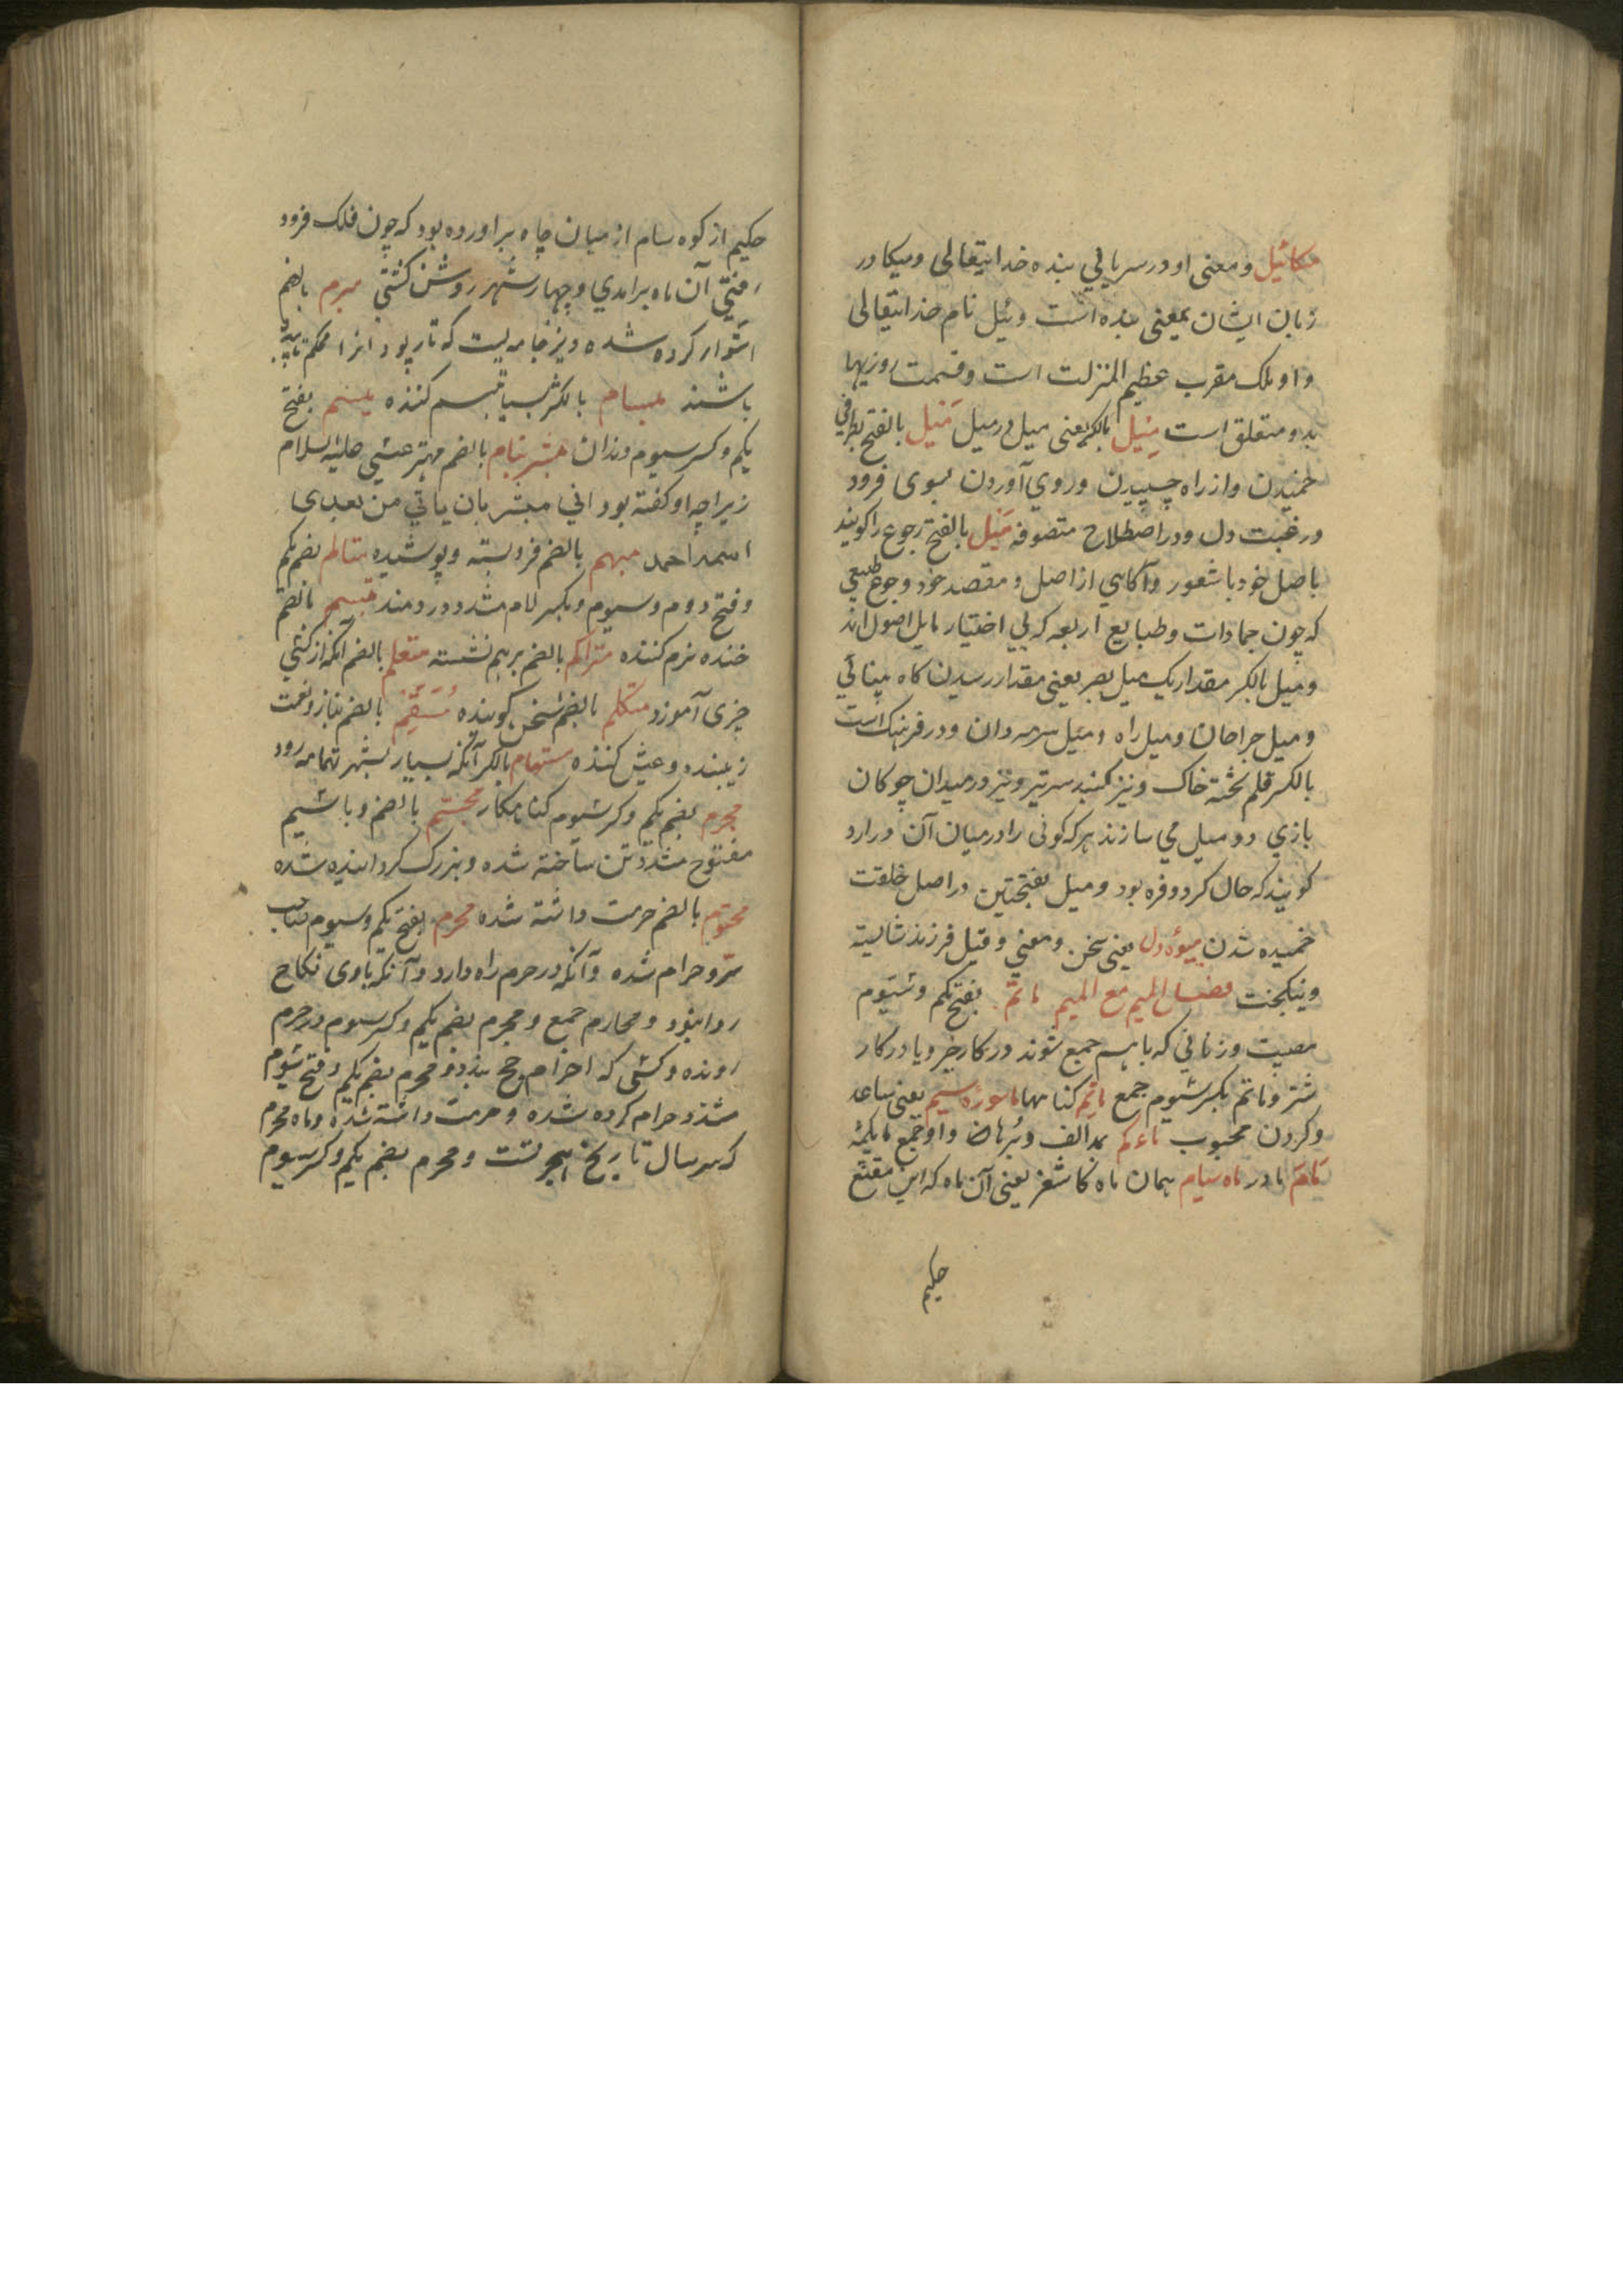 مکائیل و معنی او در سریانی بنده خدایتعالی و میکا در
زبان ایشان بمعنی بنده است و ئیل نام خدایتعالی
و او ملک مقرب عظیم المنزلت است و قسمت روزیها
بدو متعلق است مِیل بالکسر یعنی میل در میل مَیل بالفتح بطرفی
خمیدن و از راه چسپیدن و روی آوردن بسوی فرود
و رغبت دل و در اصطلاح متصوفه مَیل بالفتح رجوع را کویند
باصل خود با شعور و آکاهی از اصل و مقصد خود و رجوع طبیعی
که چون جمادات و طبایع اربعه که بی اختیار مایل اصول اند
و میل بالکسر مقدار یک میل بصر یعنی مقدار رسیدن کاه بینائی
و میل جراحان و میل راه و میل سرمه دان و در فرهنک است
بالکسر قلم تخته خاک و نیز کنبد سرتیز و نیز در میدان چوکان
بازی دو میل می سازند هر که کوئی را در میان آن در آرد
کویند که حال کرد و فره بود و میل بفتحتین در اصل خلقت
خمیده شدن میوهٔ دل یعنی سخن و معنی و قیل فرزند شایسته
و نیکبخت فصل المیم مع المیم ماتم بفتح یکم و سیوم
مصیبت و زنانی که باهم جمع شوند در کار خیر و یا در کار
شتر و ماتم بکسر سیوم جمع مآثم کناهها ماسورهٔ سیم یعنی ساعد
و کردن محبوب ماءکم بمد الف و برهان و او جمع مایکمه
مَامَ مادر ماه سیام همان ماه کاشغر یعنی آن ماه که ابن مقنع
حکیم
حکیم از کوه سام از میان چاه برآورده بود که چون فلک فرود
رفتی آن ماه برامدی و چهار شهر روشن کشتی مبرم بالضم
استوار کرده شده و نیز جامه ایست که تار پود آنرا محکم تابیده
باشند مبسام بالکسر بسیار تبسم کننده مبسم بفتح
یکم و کسر سیوم دندان مبشر بنام بالضم مهتر عیسی علیه السلام
زیراچه او کفته بود انی مبشر بان یاتی من بعدی
اسمه احمد مبهم بالضم فروبسته و پوشیده متالم بضم یکم
و فتح دوم و سیوم و بکسر لام مشدد دردمند متبسم بالضم
خنده نرم کننده متراکم بالضم برهم نشسته متعلم بالضم آنکه از کسی
چیزی آموزد متکلم بالضم سخن کوینده مُتنعّم بالضم بناز و نعمت
زیبنده و عیش کننده متهام بالکسر آنکه بسیار بشهر تهامه رود
مجرم بضم یکم و کسر سیوم کناهکار مجسّم بالضم و با سیم
مفتوح مشدد تن ساخته شده و بزرک کردانیده شده
محترم بالضم حرمت داشته شده محرم بفتح یکم و سیوم صاحب
سرّ و حرام شده و آنکه در حرم راه دارد و آنکه باوی نکاح
روا نبود و محارم جمع و محرم بضم یکم و کسر سیوم در حرم
رونده و کسی که احرام حج بندد و محرم بضم یکم و فتح سیوم
مشدد حرام کرده شده و حرمت داشته شده و ماه محرم
که سر سال تاریخ هجرتست و محرم بضم یکم و کسر سیوم